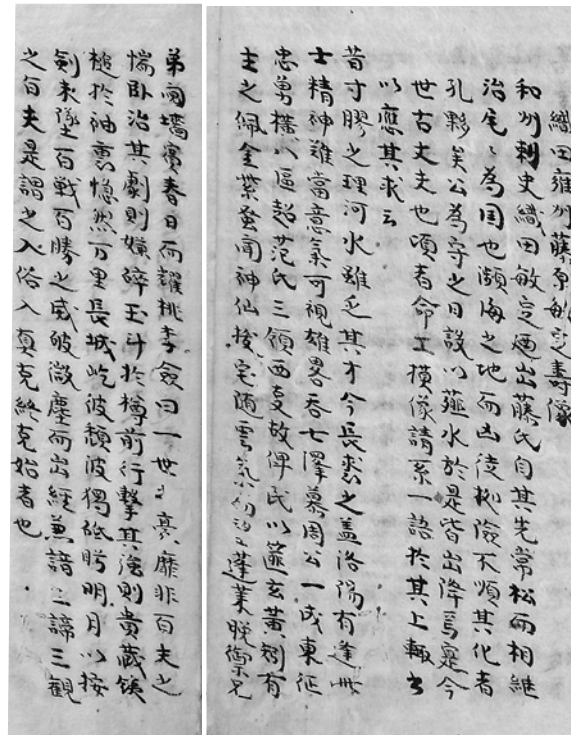 織田雍州藤原敏定寿像
和州刺史織田敏定廼出藤氏自其先常松而相継
治尾々為国也瀕海之地而凶徒拠険不順其化者
孔夥矣公為守之日設以薤水於是皆出降焉寔今
世古丈夫也頃者命工摸像請系一語於其上輙書
以應其求云
昔寸膠之理河水雖乏其才今長裘之盖洛陽有逢此
士精神難當意氣可視雄畧呑七澤慕周公一戎東征
忠勇横八區超范氏三領西夏故俾民以篚玄黄矧有
主之佩金紫蚤聞神仙抜宅随雲氣於蓬莱晚禦兄
弟鬩墻賞春日而譲桃李僉曰一世之真靡非百夫之
惴臥治其劇則嫌碎玉斗於樽前行撃其強則貴蔵鉄
槌於袖裏惚然万里長城屹彼頽波獨砥眄明月以按
剣未墜百戦百勝之威破微塵而出経兼諳二諦三観
之旨夫是謂之入俗入真克終克始者也